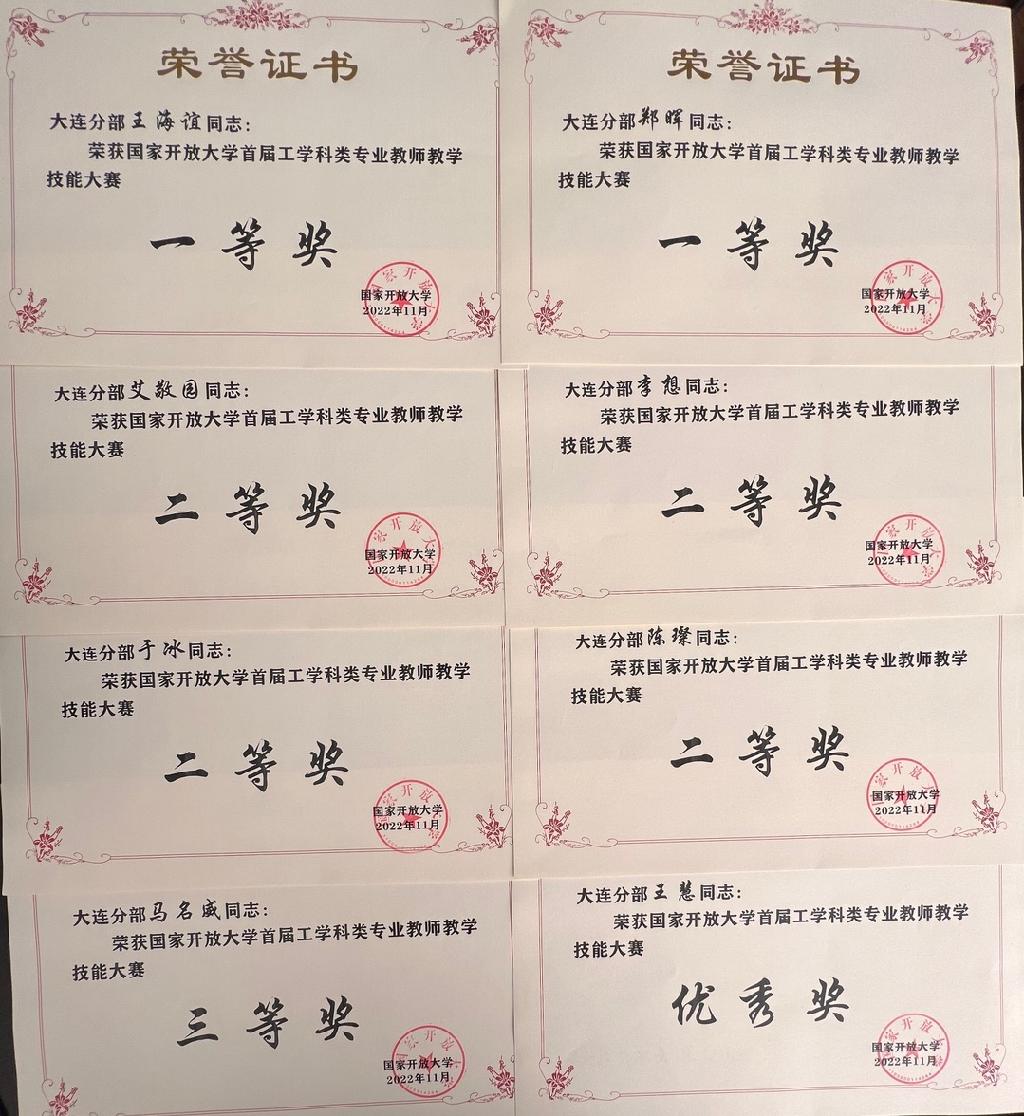 荣誉证书
大连分部王海谊同志：
荣获国家开放大学首届工学科类专业教师教学
技能大赛
一等奖
国家开放大学
2022年11月
荣誉证书
大连分部郑晖同志：
荣获国家开放大学首届工学科类专业教师教学
技能大赛
一等奖
国家开放大学
2022年11月
大连分部艾敬园同志：
荣获国家开放大学首届工学科类专业教师教学
技能大赛
二等奖
国家开放大学
2022年11月
大连分部李想同志：
荣获国家开放大学首届工学科类专业教师教学
技能大赛
二等奖
国家开放大学
2022年11月
大连分部于冰同志：
荣获国家开放大学首届工学科类专业教师教学
技能大赛
二等奖
国家开放大学
2022年11月
大连分部陈璨同志：
荣获国家开放大学首届工学科类专业教师教学
技能大赛
二等奖
国家开放大学
2022年11月
大连分部马名威同志：
荣获国家开放大学首届工学科类专业教师教学
技能大赛
三等奖
国家开放大学
2022年11月
大连分部王慧同志：
荣获国家开放大学首届工学科类专业教师教学
技能大赛
优秀奖
国家开放大学
2022年11月